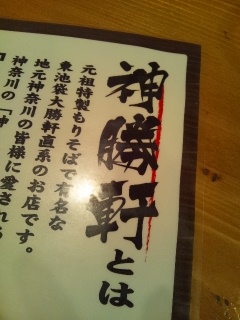 神勝軒とは
元祖特製もりそばで有名な
東池袋大勝軒直系のお店です。
地元神奈川の皆様に愛される
神奈川の「神